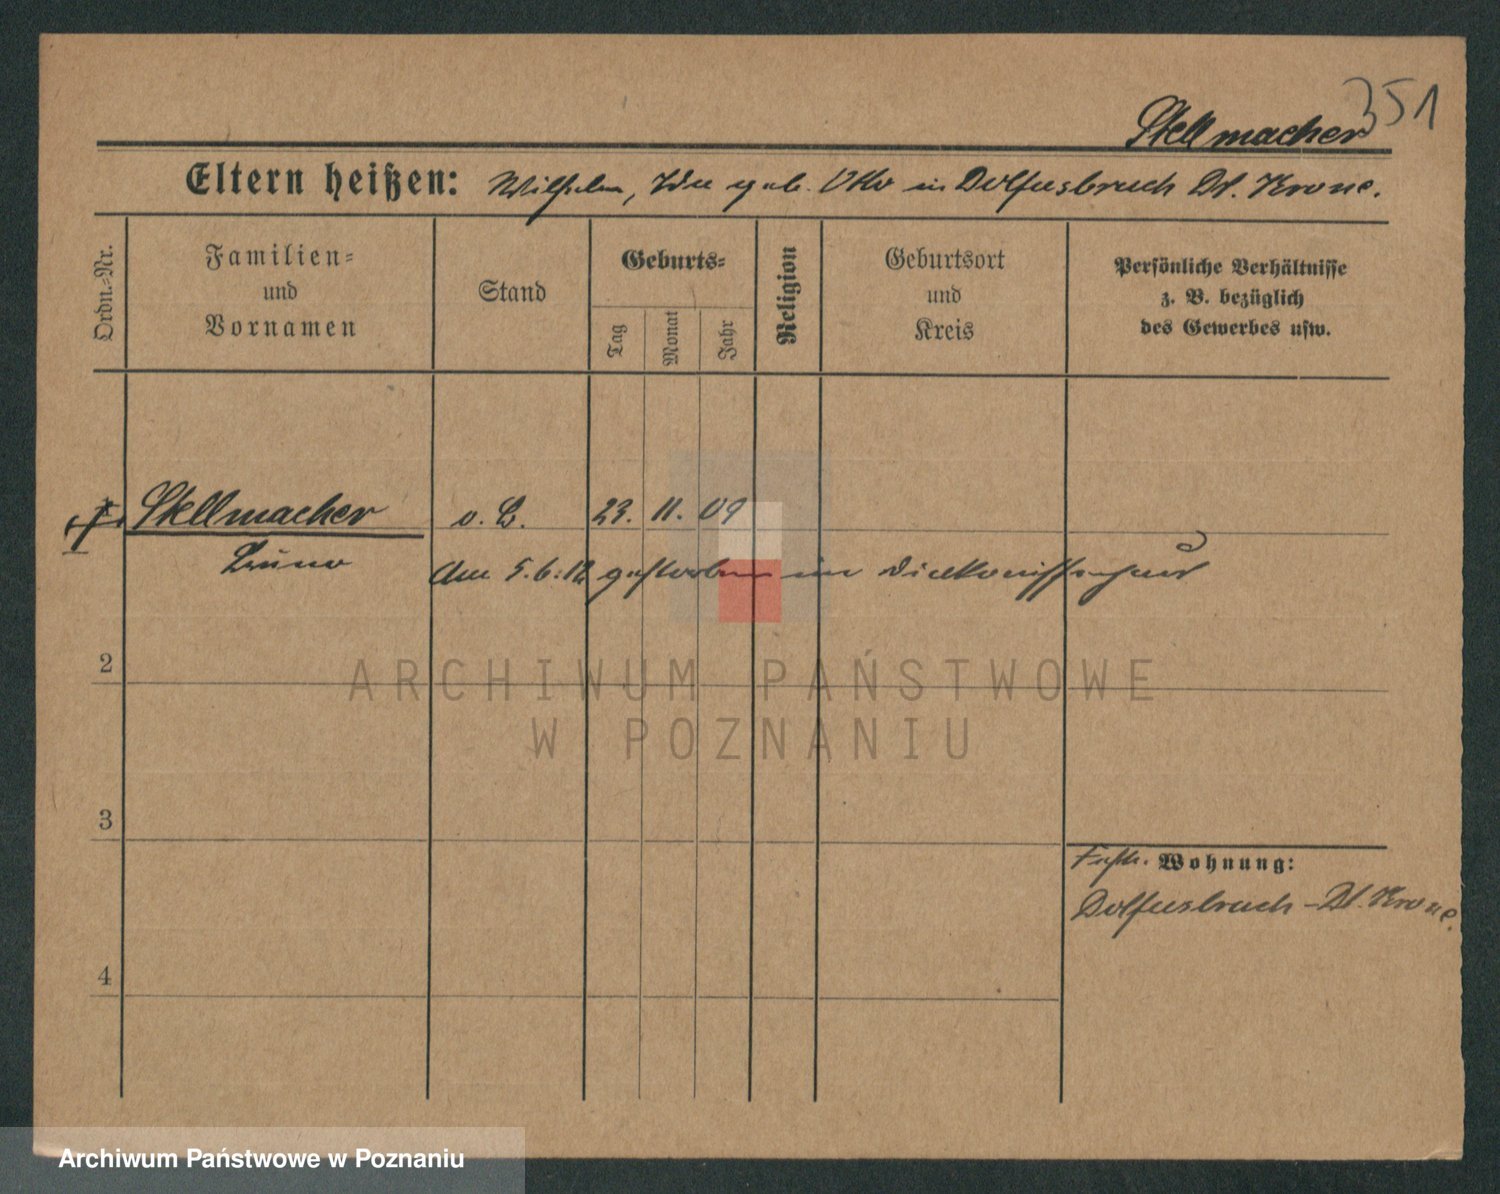 351
Stellmacher
Eltern heißen: Wilhelm, geb. Otto in Dolfusbruch Dt. Krone.
Ordn.-Nr.
Familien-
und
Vornamen
Stand
Geburts-
Tag
Monat
Jahr
Religion
Geburtsort
und
Kreis
Persönliche Verhältnisse
z. B. bezüglich
des Gewerbes usw.
Stellmacher o. B. 23. 11. 09
Am 5.6.12 gestorben im Diakonissenhaus
2
ARCHIWUM PAŃSTWOWE
W POZNANIU
3
Wohnung:
Dolfusbruch - Dt. Krone.
4
Archiwum Państwowe w Poznaniu